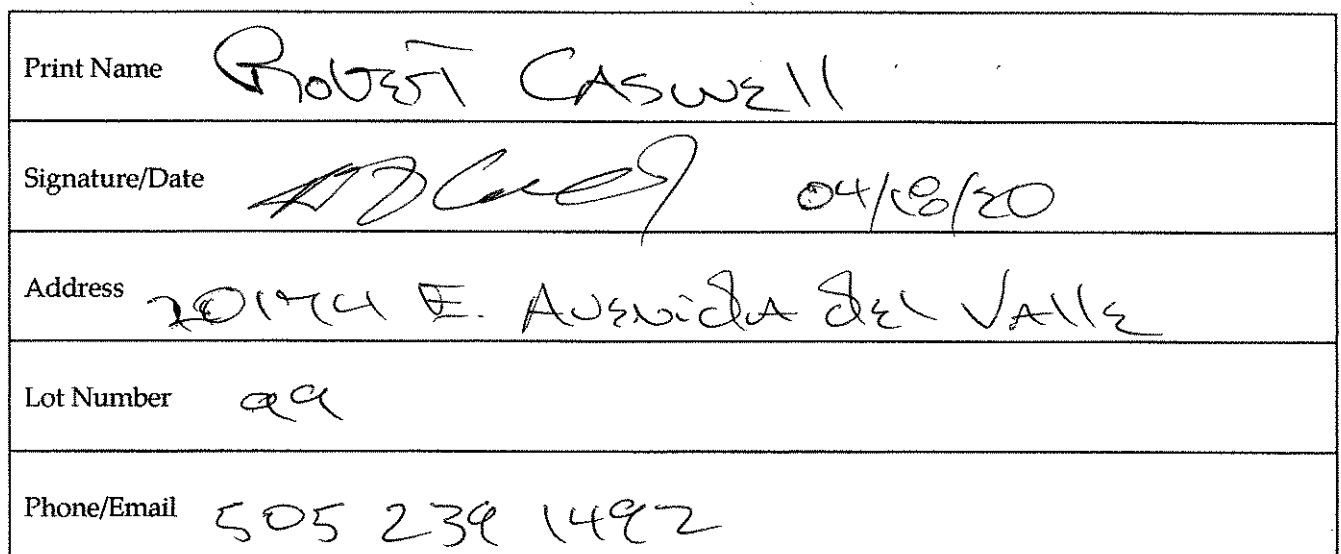 Print Name Robert Caswell
Signature/Date 04/18/20
Address 20174 E. Avenida del Valle
Lot Number 99
Phone/Email 505 239 1492